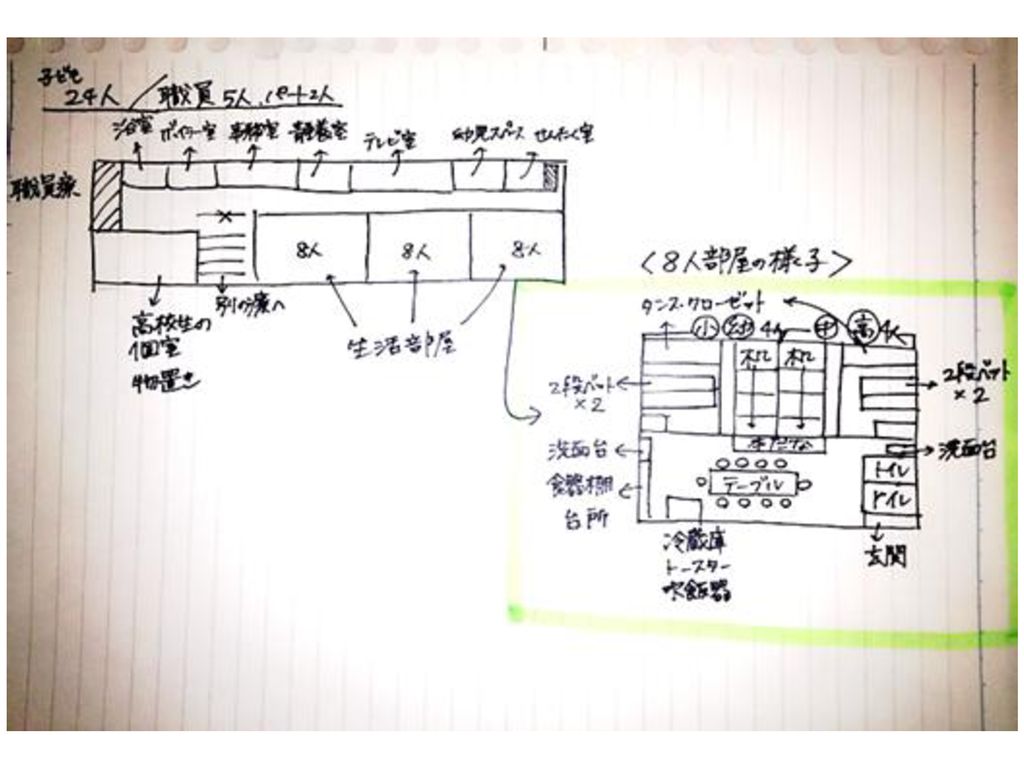 子ども
24人/職員 5人、パート2人
浴室 ボイラー室 事務室 静養室 テレビ室 幼児スペース せんたく室
職員寮
8人 8人 8人
別の寮へ
高校生の
個室
物置き
生活部屋
<8人部屋の様子>
タンス・クローゼット
小 幼 4人 中 高 4人
机 机
2段ベット
×2
2段ベット
×2
本だな
洗面台
洗面台
食器棚
台所
テーブル
トイレ
トイレ
冷蔵庫
トースター
炊飯器
玄関